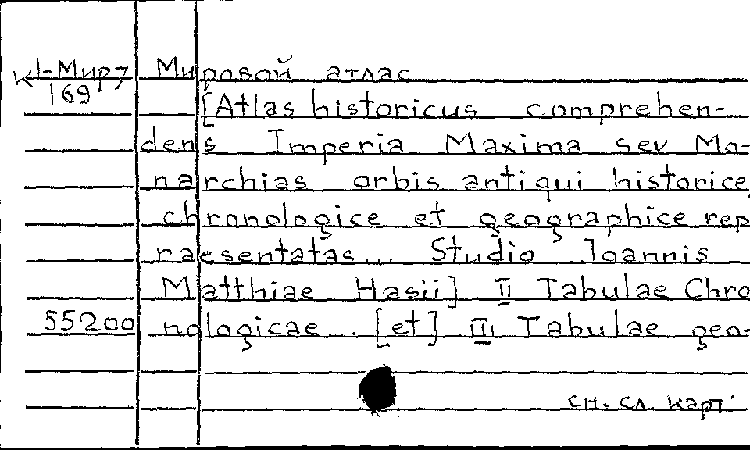 К1-Мир7 Мировой атлас
169 [Atlas historicus comprehen-
dens Imperia Maxima seu Mo-
narchias orbis antiqui historice,
chronologice et geographice rep
raesentatas... Studio Ioannis
Matthiae Hasii] II Tabulae Chro
55200 nologicae . [et] III Tabulae geo-
сн. сл. карт.